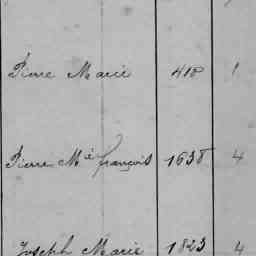 Pierre Marie 418 1
Pierre Mie françois 1638 4
Joseph Marie 1823 4